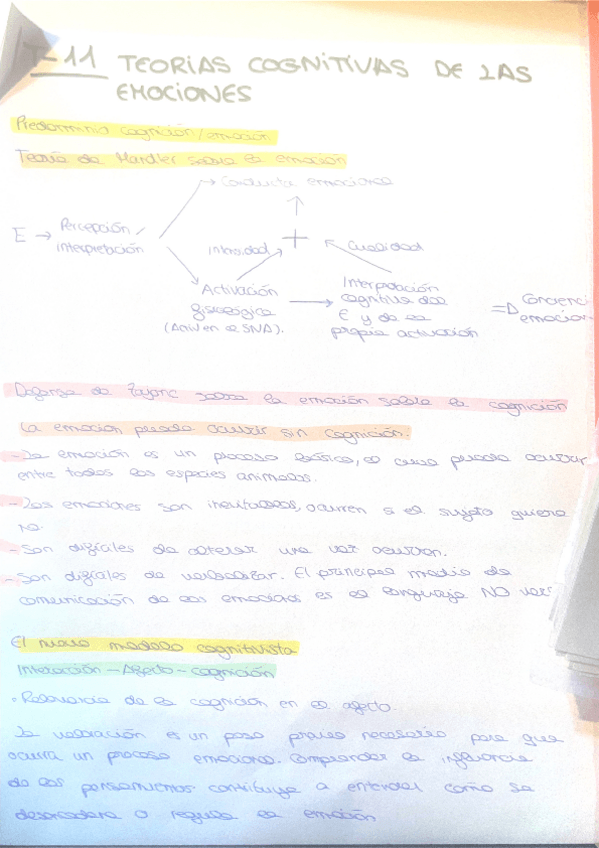 T-11 TEORIAS COGNITIVAS DE LAS
EMOCIONES
Predominio cognición/emoción
Teoría de Mandler sobre la emoción
Conducta emocional
E → Percepción/
interpretación
Intensidad + Cualidad
Activación
fisiológica
(Activ en el SNA).
Interpretación
cognitiva del
E y de la
propia activación
Concienci
emocion
Defensa de Zajonc sobre la emoción sobre la cognición
La emocion puede ocurrir sin cognición.
- La emoción es un proceso básico, el cual puede ocurrir
entre todas las especies animales.
- Las emociones son inevitables, ocurren si el sujeto quiere
no.
- Son difíciles de alterar una vez ocurren.
- Son difíciles de verbalizar. El principal medio de
comunicación de las emociones es el lenguaje NO ver
El nuevo modelo cognitivista
Interacción - Afecto - cognición
• Relevancia de la cognición en el afecto.
La valoración es un paso previo necesario para que
ocurra un proceso emocional. Comprender la influencia
de los pensamientos contribuye a entender como se
desencadena o regula la emoción